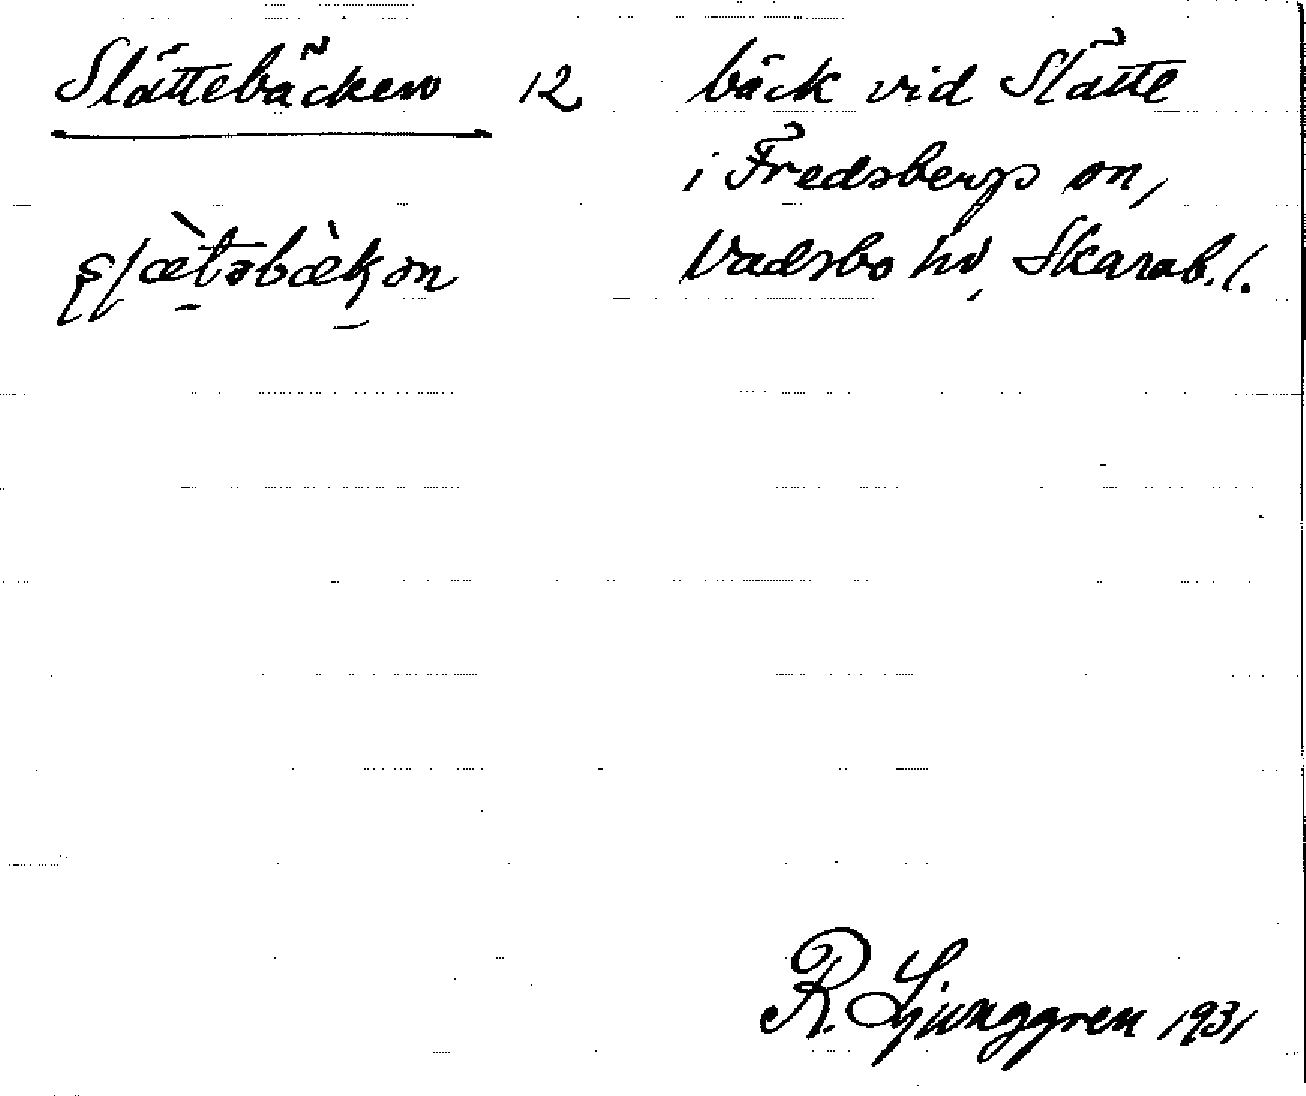 Slättebäcken 12 bäck vid Slätte
i Fredsbergs sn,
Vadsbo hd, Skarab. l.
R. Ljunggren 1931